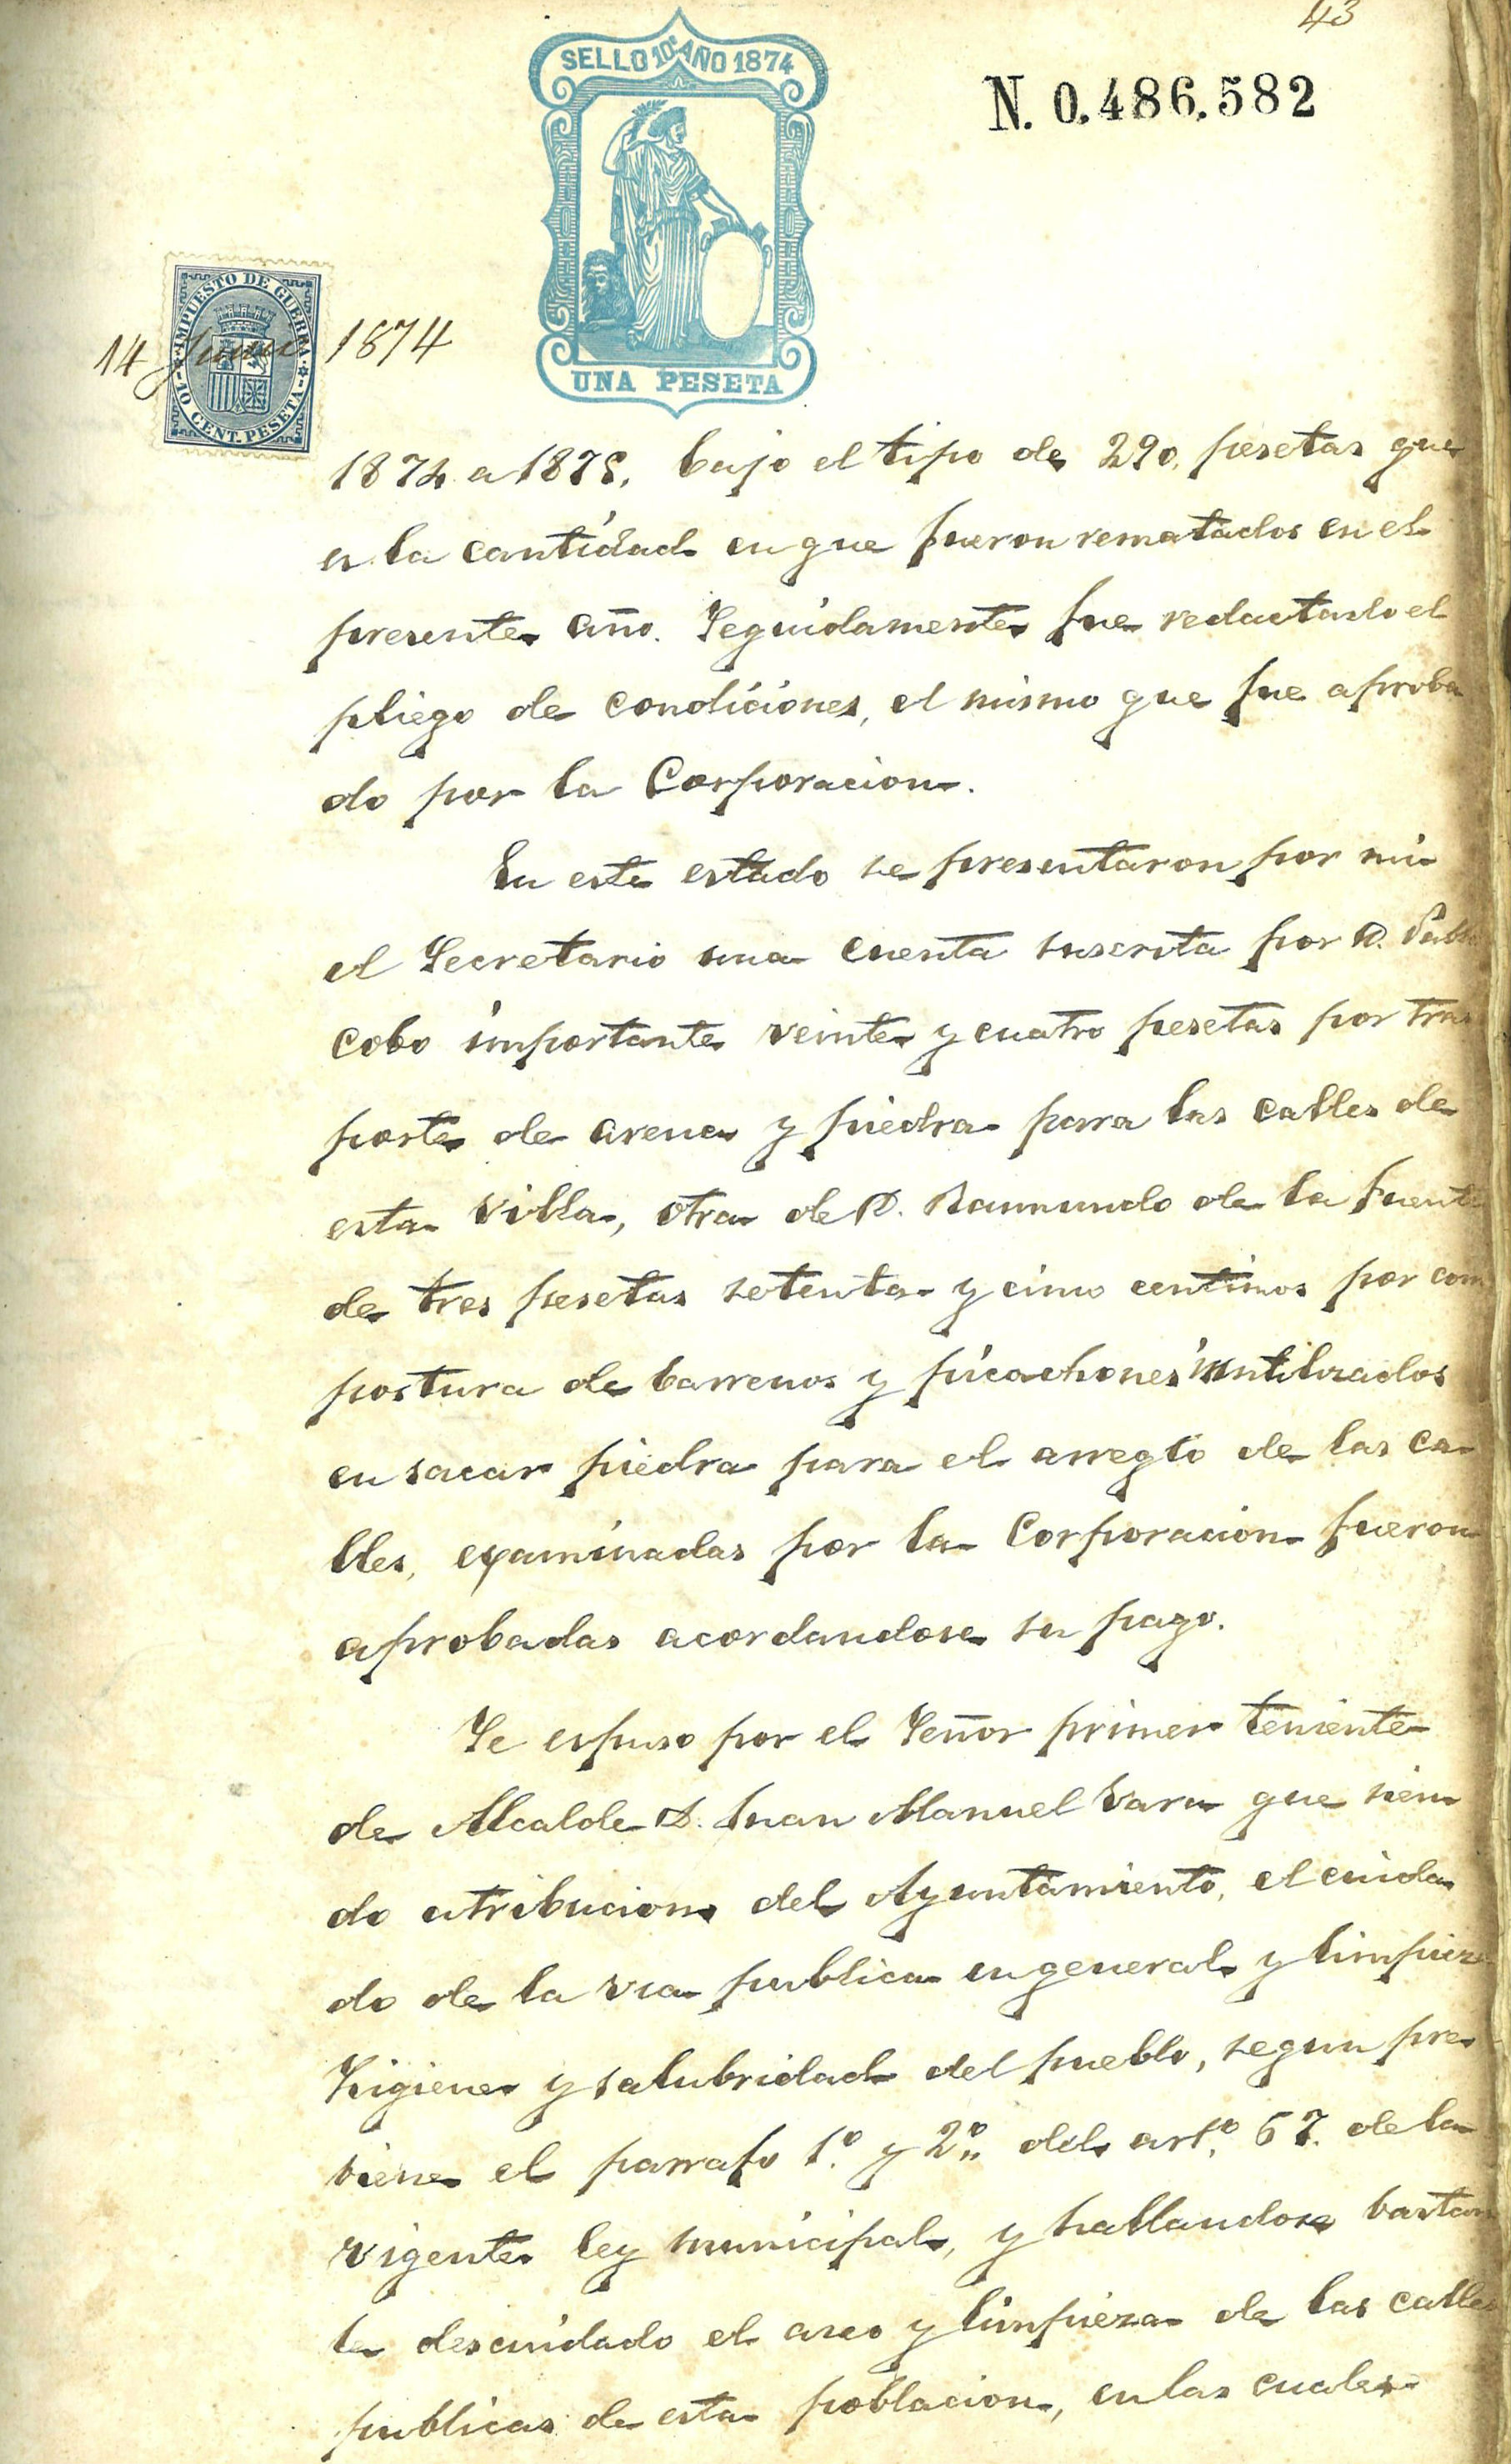 43
SELLO 10º AÑO 1874
N. 0.486.582
IMPUESTO DE GUERRA
14 Junio 1874
10 CENT. PESETA
UNA PESETA
1874 a 1875, bajo el tipo de 290, pesetas que
es la cantidad en que fueron rematados en el
presente año. Seguidamente fue redactado el
pliego de condiciones, el mismo que fue aproba
do por la Corporacion.
En este estado se presentaron por mi
el Secretario una cuenta suscrita por D. Pablo
Cobo importante veinte y cuatro pesetas por tras
porte de arena y piedra para las calles de
esta Villa, otra de D. Raimundo de la Fuente
de tres pesetas setenta y cinco centimos por com
postura de barrenos y picachones inutilizados
en sacar piedra para el arreglo de las ca
lles, examinadas por la Corporacion fueron
aprobadas acordandose su pago.
Se espuso por el Señor primer teniente
de Alcalde D. Juan Manuel Vara que sien
do atribucion del Ayuntamiento, el cuida
do de la via publica en general y limpieza
higiene y salubridad del pueblo, segun pre
viene el parrafo 1º y 2º del artº 67. de la
vigente ley municipal, y hallandose bastan
te descuidado el aseo y limpieza de las calles
publicas de esta poblacion, en las cuales